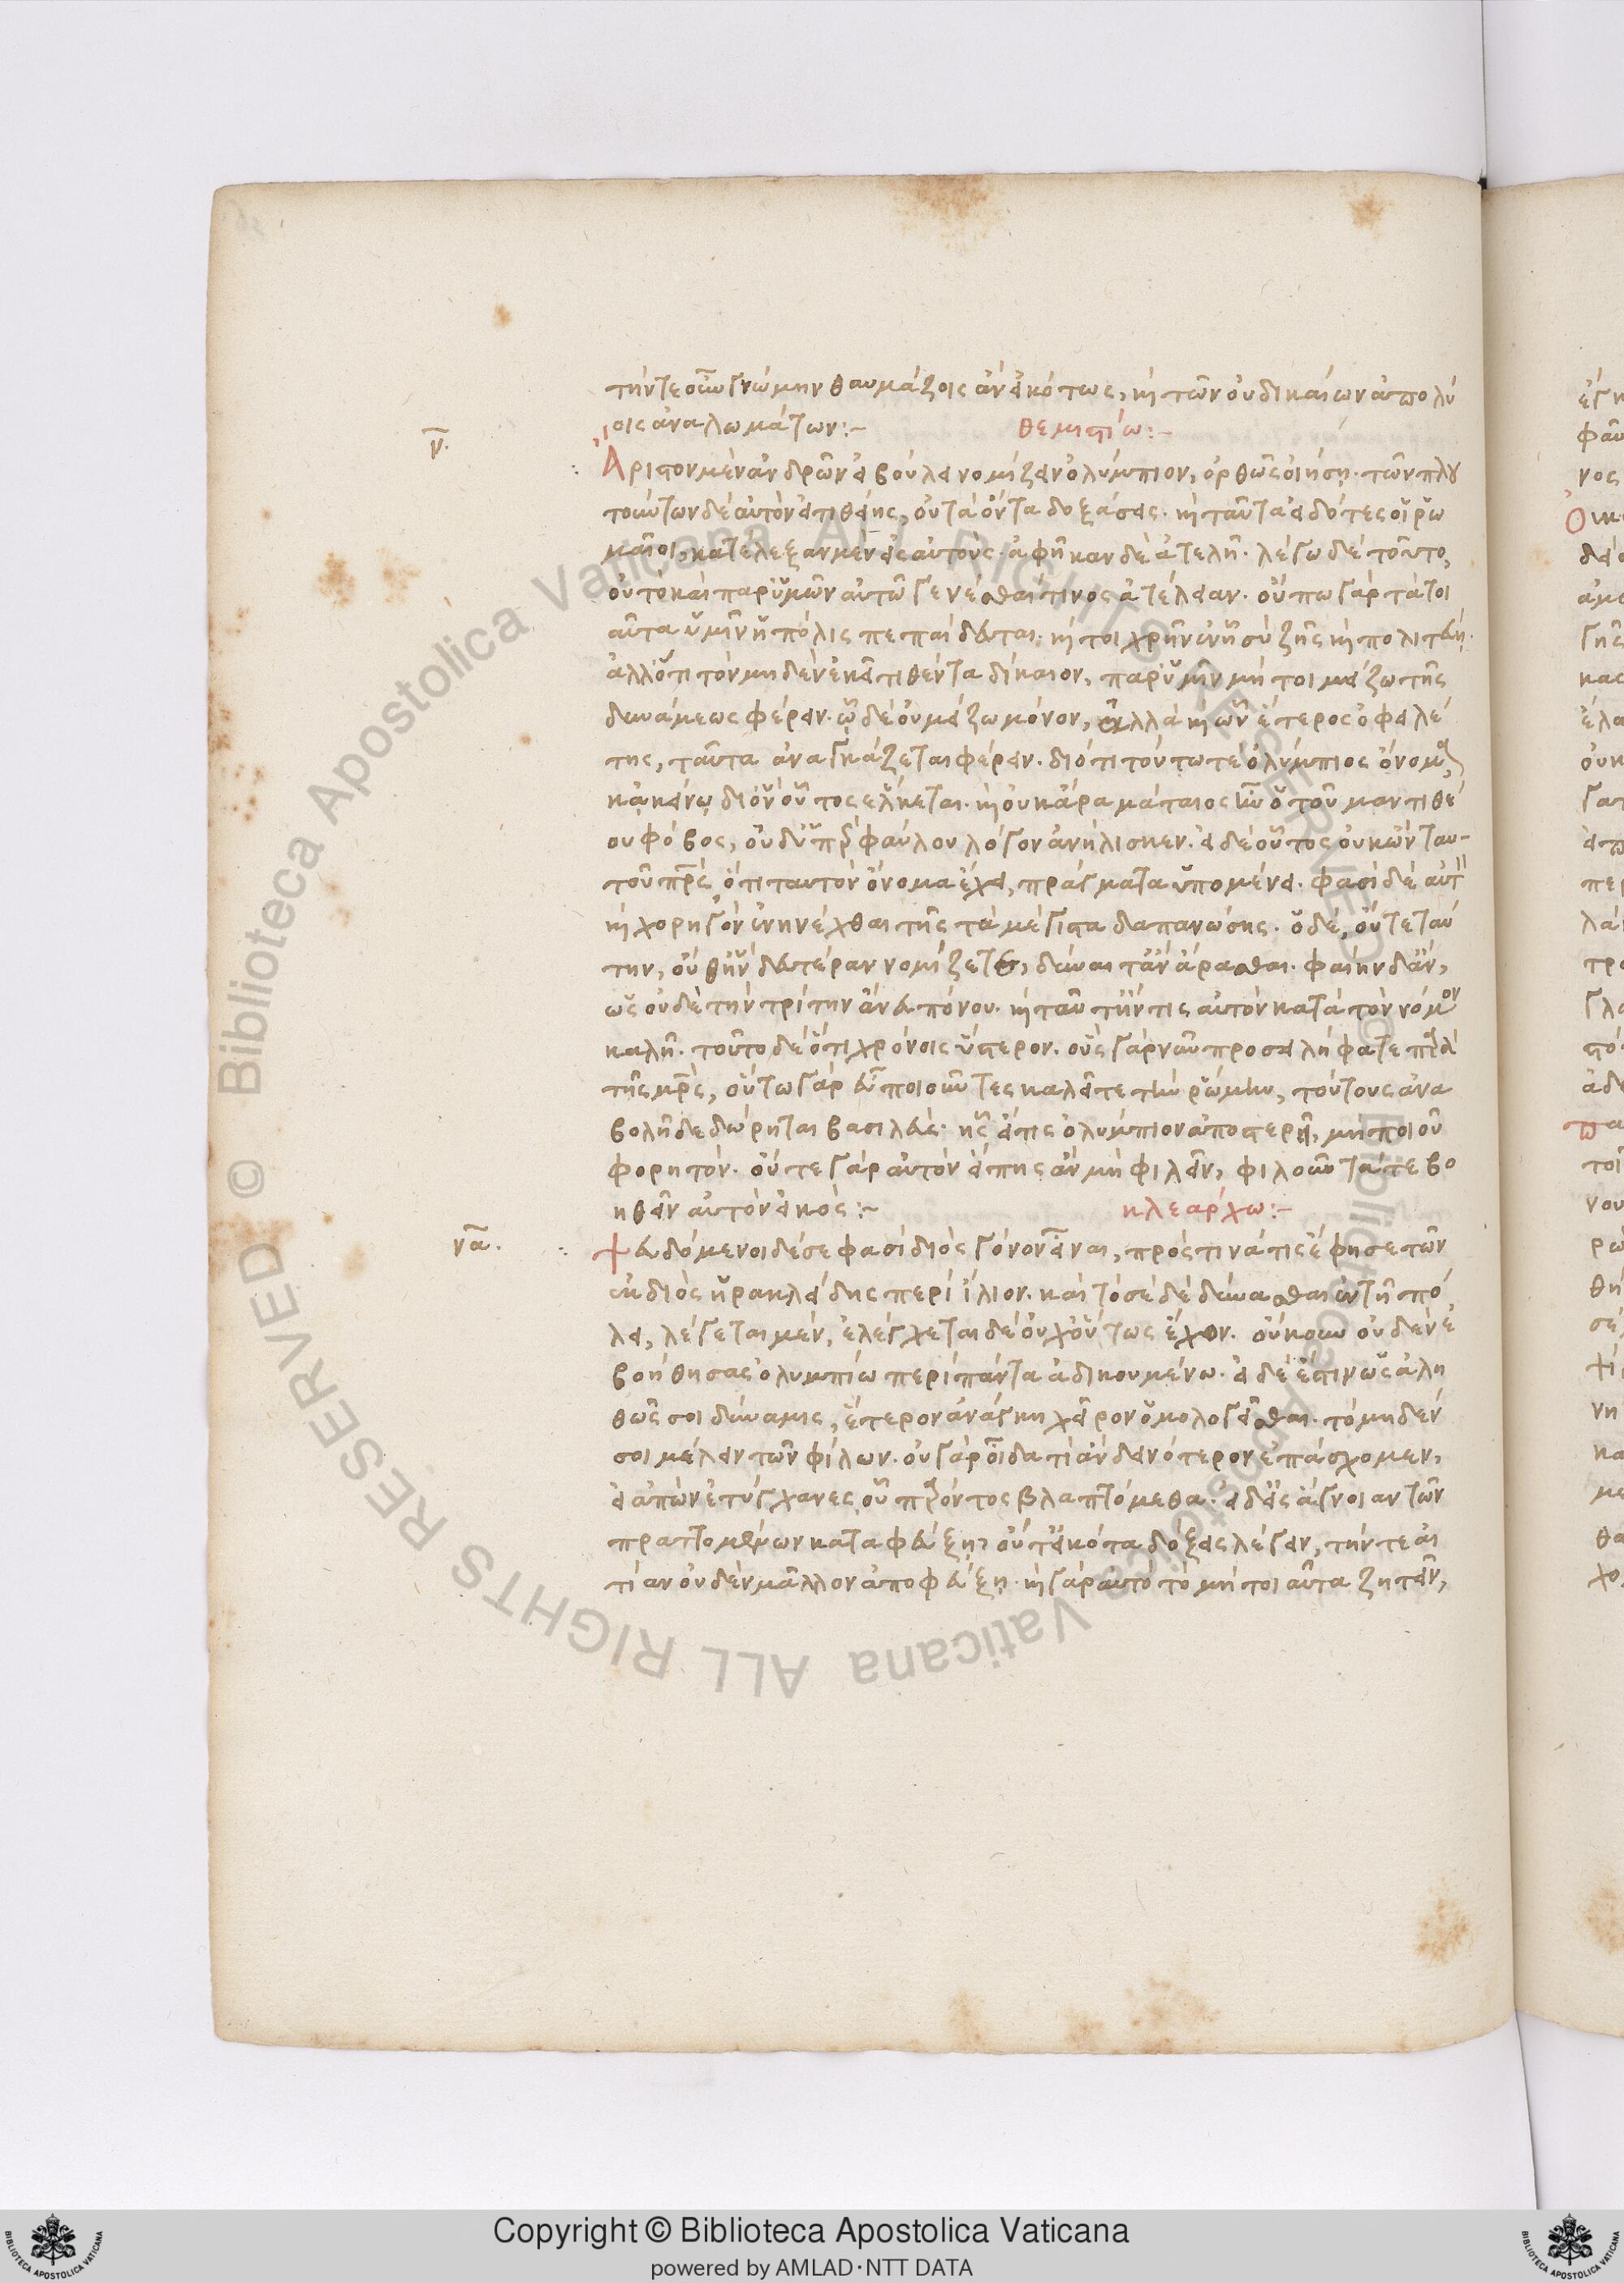 τήν τε σὴν γνώμην θαυμάζοις ἂν εἰκότως, καὶ τῶν οὐ δικαίων ἀπολύ
οις ἀναλωμάτων:~ θεμιστίω:~
ν.
Ἄριστον μὲν ἀνδρῶν εἰ βούλει νομίζειν ὀλύμπιον, ὀρθῶς οἰήσῃ. τῶν πλου
τούντων δὲ αὐτὸν εἰ τιθείης, οὐ τὰ ὄντα δοξάσεις. καὶ ταῦτα εἰδότες οἱ ῥω
μαῖοι, κατέλεξαν μὲν εἰς αὐτοὺς. ἀφῆκαν δὲ ἀτελῆ. λέγω δὲ τοῦτο,
οὐ τὸ καὶ παρ' ὑμῶν αὐτῶ γενέσθαι τινος ἀτέλειαν. οὔπω γὰρ τὰ τοι
αῦτα ὑμῖν ἡ πόλις πεπαίδευται. καίτοι χρῆν ἐν ᾗ σὺ ζῇς καὶ πολιτεύῃ.
ἀλλ' ὅτι τὸν μηδὲν ἐκεῖ τιθέντα δίκαιον, παρ' ὑμῖν μήτοι μείζω τῆς
δυνάμεως φέρειν. ὧδε οὐ μείζω μόνον, ἀλλὰ καὶ ὧν ἕτερος ὀφειλέ
της, ταῦτα ἀναγκάζεται φέρειν. διότι τούτω τε ὀλύμπιος ὄνομα,
κἀκείνῳ δι' ὃν οὗτος ἕλκεται. καὶ οὐκ ἄρα μάταιος ἦν ὁ τοῦ μαντιθέ
ου φόβος, οὐδ' ὑπὲρ φαύλου λόγον ἀνήλισκεν. εἰ δὲ οὗτος οὐκ ὢν ταυ-
τοῦ πατρὸς ὅτι ταυτὸν ὄνομα ἔχει, πράγματα ὑπομένει. φασὶ δὲ αὐτὸν
καὶ χορηγὸν ἐνηνέχθαι τῆς τὰ μέγιστα δαπανώσης. ὁ δὲ, οὔτε ταύ
την, οὔθ' ἣν δευτέραν νομίζετε, δύναιτ' ἂν ἄρασθαι. φαίην δ' ἂν,
ὡς οὐδὲ τὴν τρίτην ἄνευ πόνου. καὶ ταύτην τις αὐτὸν κατὰ τὸν νόμον
καλῆ. τοῦτο δὲ ὅτι χρόνοις ὕστερον. οὓς γὰρ νῦν προσειλήφατε παρὰ
τῆς μητρὸς, οὕτω γὰρ εὖ ποιοῦντες καλεῖτε τὴν ῥώμην, τούτους ἀνα
βολῆ δεδώρηται βασιλεὺς. ἧς εἴ τις ὀλύμπιον ἀποστερῆ, μὴ ποιοῦ
φορητόν. οὔτε γὰρ αὐτὸν εἴπῃς ἂν μὴ φιλεῖν, φιλοῦντά τε βο
ηθεῖν αὐτὸν εἰκὸς:~ κλεάρχω:~
να.
Ψευδόμενοι δέ σε φασὶ διὸς γόνον εἶναι, πρός τινά τις ἔφησε τῶν
ἐκ διὸς ἡρακλείδης περὶ ἴλιον. καὶ τό σὲ δὲ δύνασθαι ἐν τῆ πό
λει, λέγεται μὲν, ἐλέγχεται δὲ οὐχ οὕτως ἔχον. οὔκουν οὐδὲν ἐ
βοήθησας ὀλυμπίω περὶ πάντα ἀδικουμένω. εἰ δέ ἐστιν ὡς ἀλη
θῶς σοι δύναμις, ἕτερον ἀνάγκη χεῖρον ὁμολογεῖσθαι. τὸ μηδέν
σοι μέλειν τῶν φίλων. οὐ γὰρ οἶδα τί ἂν δεινότερον ἐπάσχομεν,
εἰ ἀπὼν ἐτύγχανες οὗ παρόντος βλαπτόμεθα. εἰ δ' εἰς ἄγνοιαν τῶν
πραττομένων καταφεύξῃ, οὔτ' εἰκότα δόξεις λέγειν, τήν τε αἰ
τίαν οὐδὲν μᾶλλον ἀποφεύξῃ. καὶ γὰρ αὐτὸ τὸ μὴ τοιαῦτα ζητεῖν,